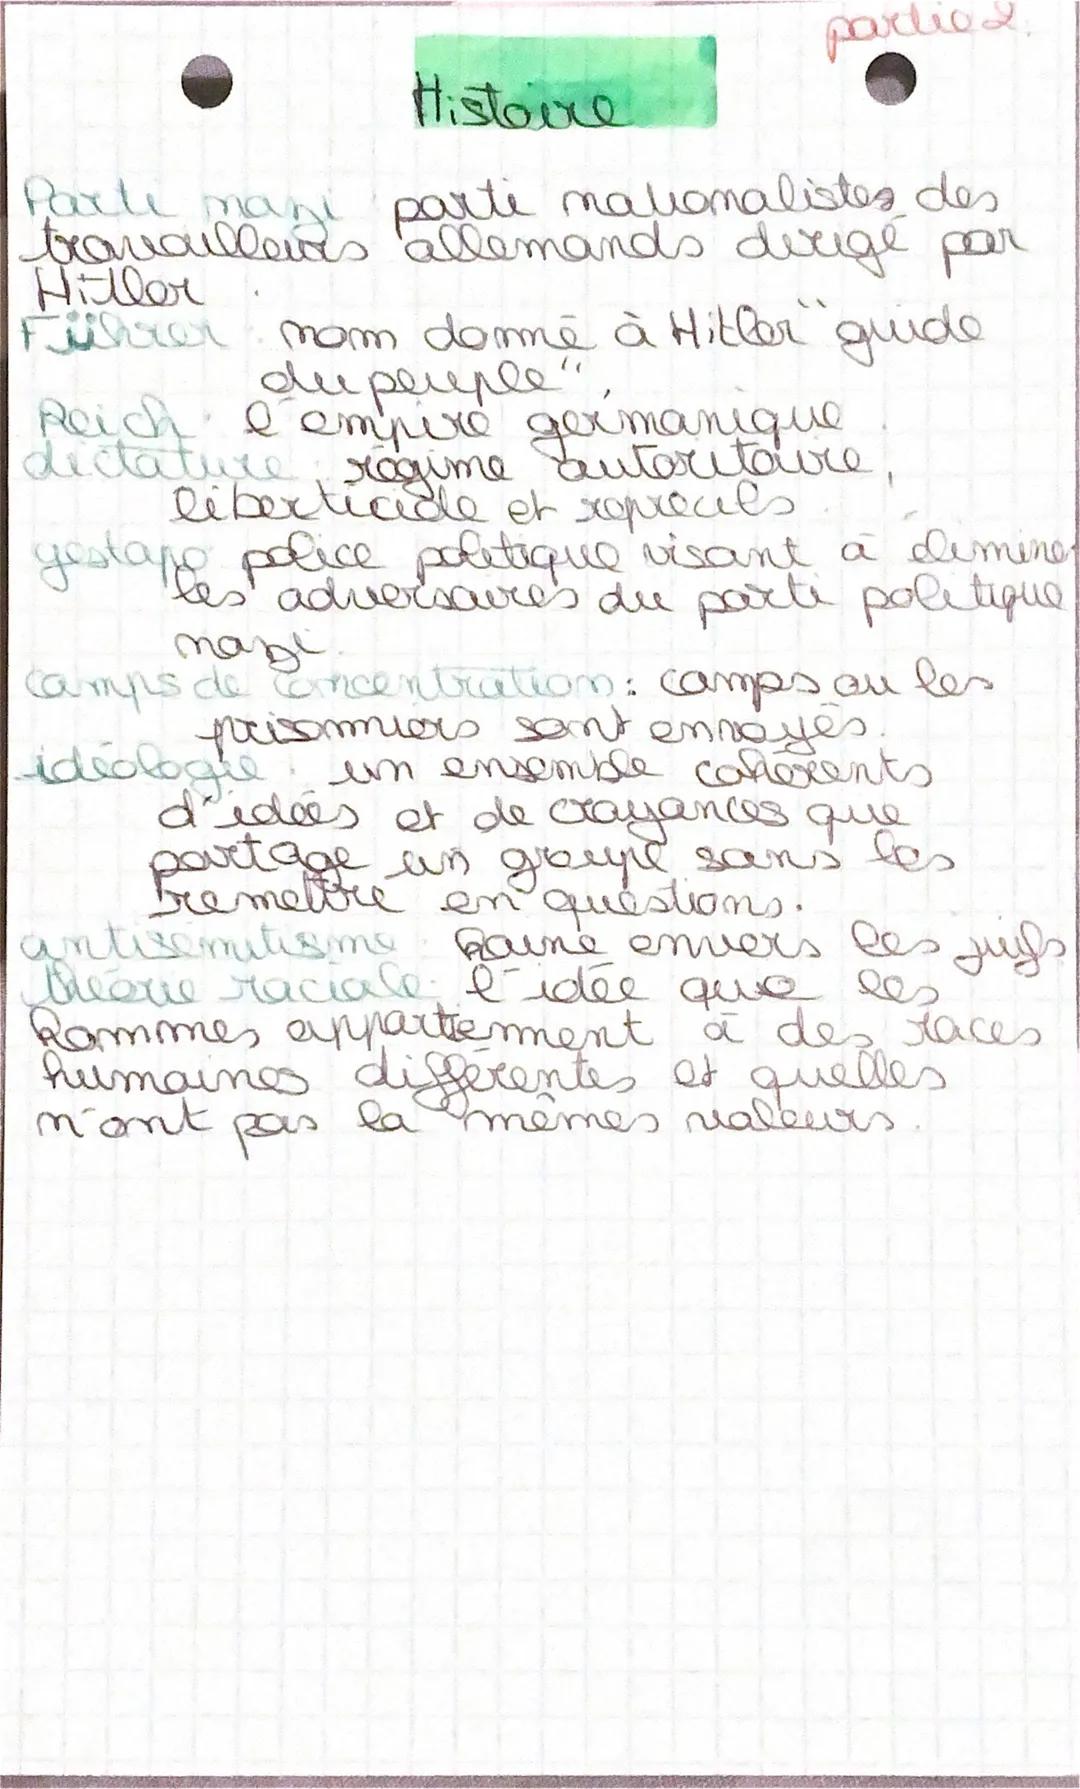 partie 2.
Histoire
Parti nazi : parti nationalistes des
travailleurs allemands dirigé par
Hitler.
Führer : nom donné à Hitler "guide
du peuple".
Reich : l'empire germanique.
dictature : régime autoritaire,
liberticide et
gestapo : police politique visant à éliminer
les adversaires du parti politique
nazi.
camps de concentration : camps ou les
prisonniers sont envoyés.
idéologie : un ensemble cohérents
d'idées et de croyances que
partage un groupe sans les
remettre en questions.
antisémitisme : haine envers les juifs
théorie raciale : l'idée que les
hommes appartiennent à des races
humaines différentes et quelles
n'ont pas la mêmes valeurs.